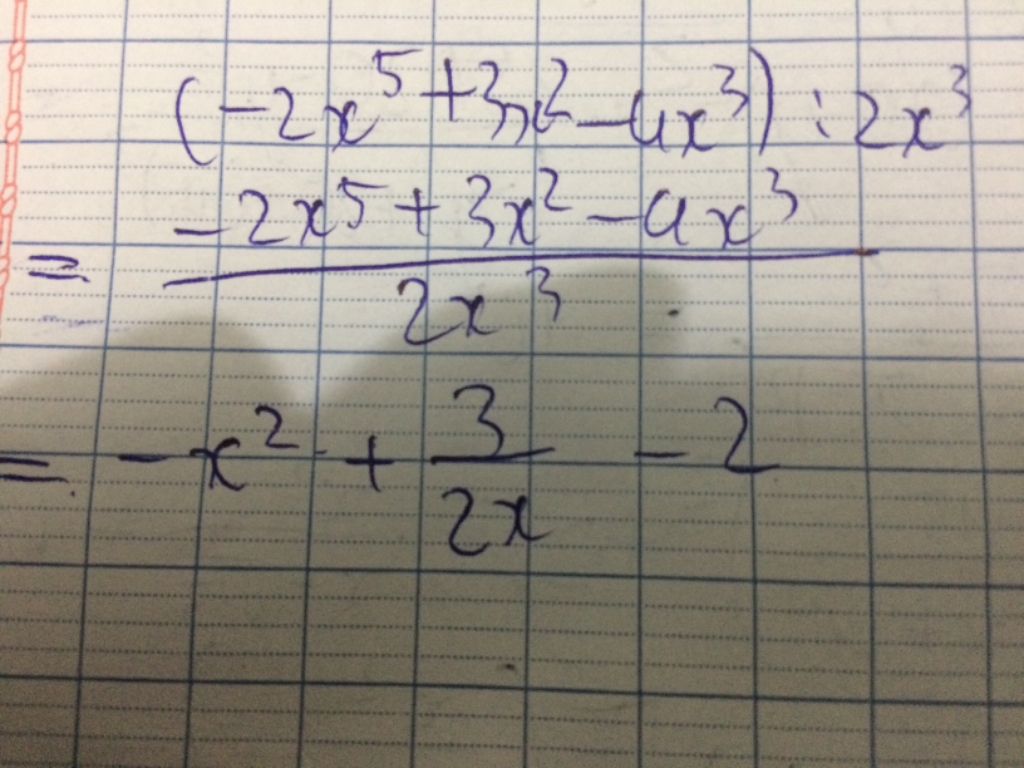 (-2x⁵ + 3x² - 4x³) : 2x³
= (-2x⁵ + 3x² - 4x³) / (2x³)
= -x² + 3/(2x) - 2